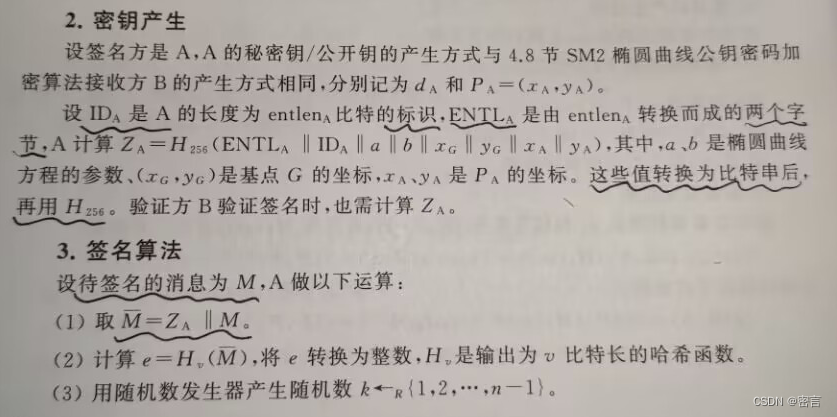 2. 密钥产生
设签名方是 A,A 的秘密钥/公开钥的产生方式与 4.8 节 SM2 椭圆曲线公钥密码加
密算法接收方 B 的产生方式相同,分别记为 d_A 和 P_A=(x_A,y_A)。
设 ID_A 是 A 的长度为 entlen_A 比特的标识,ENTL_A 是由 entlen_A 转换而成的两个字
节,A 计算 Z_A=H_256(ENTL_A ‖ ID_A ‖ a ‖ b ‖ x_G ‖ y_G ‖ x_A ‖ y_A),其中,a、b 是椭圆曲线
方程的参数、(x_G,y_G)是基点 G 的坐标,x_A、y_A 是 P_A 的坐标。这些值转换为比特串后,
再用 H_256。验证方 B 验证签名时,也需计算 Z_A。
3. 签名算法
设待签名的消息为 M,A 做以下运算:
(1) 取 M̅=Z_A ‖ M。
(2) 计算 e=H_v(M̅),将 e 转换为整数,H_v是输出为 v 比特长的哈希函数。
(3) 用随机数发生器产生随机数 k←_R{1,2,…,n−1}。
CSDN @密言